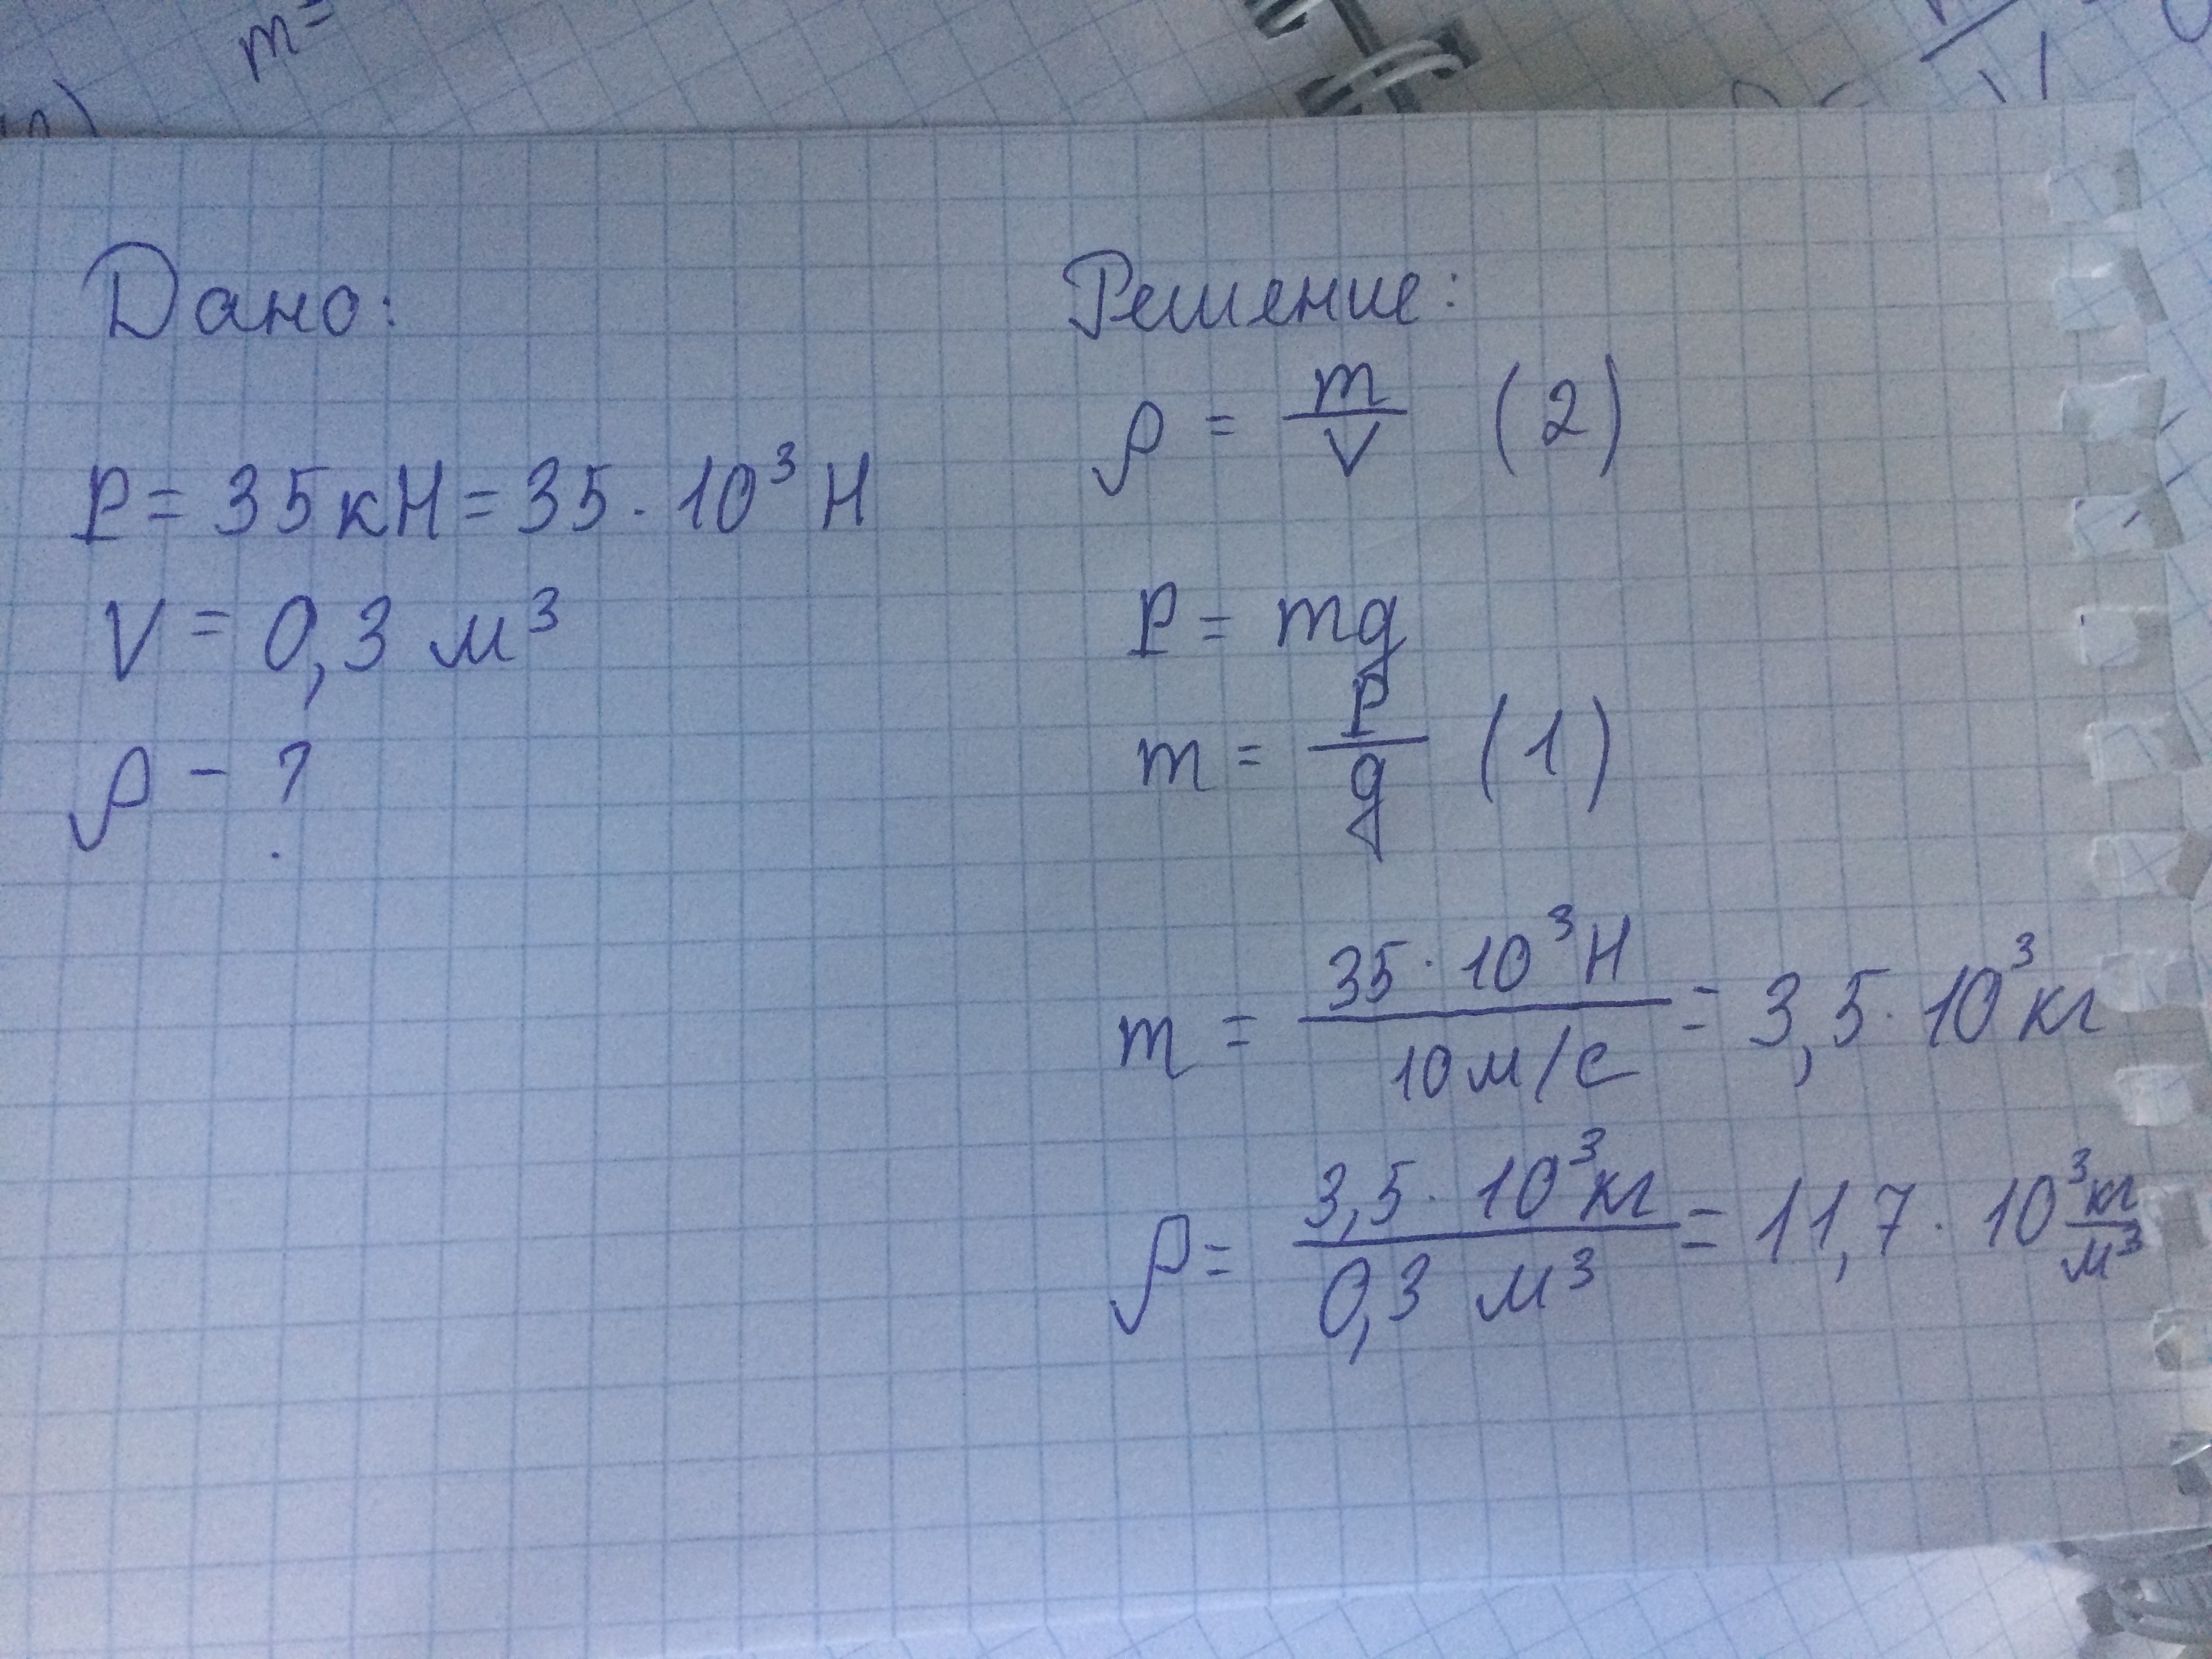 m=
Дано:
P = 35 кН = 35 · 10³ Н
V = 0,3 м³
ρ - ?
Решение:
ρ = m/V (2)
P = mg
m = P/g (1)
m = 35 · 10³ Н / 10 м/с = 3,5 · 10³ кг
ρ = 3,5 · 10³ кг / 0,3 м³ = 11,7 · 10³ кг/м³